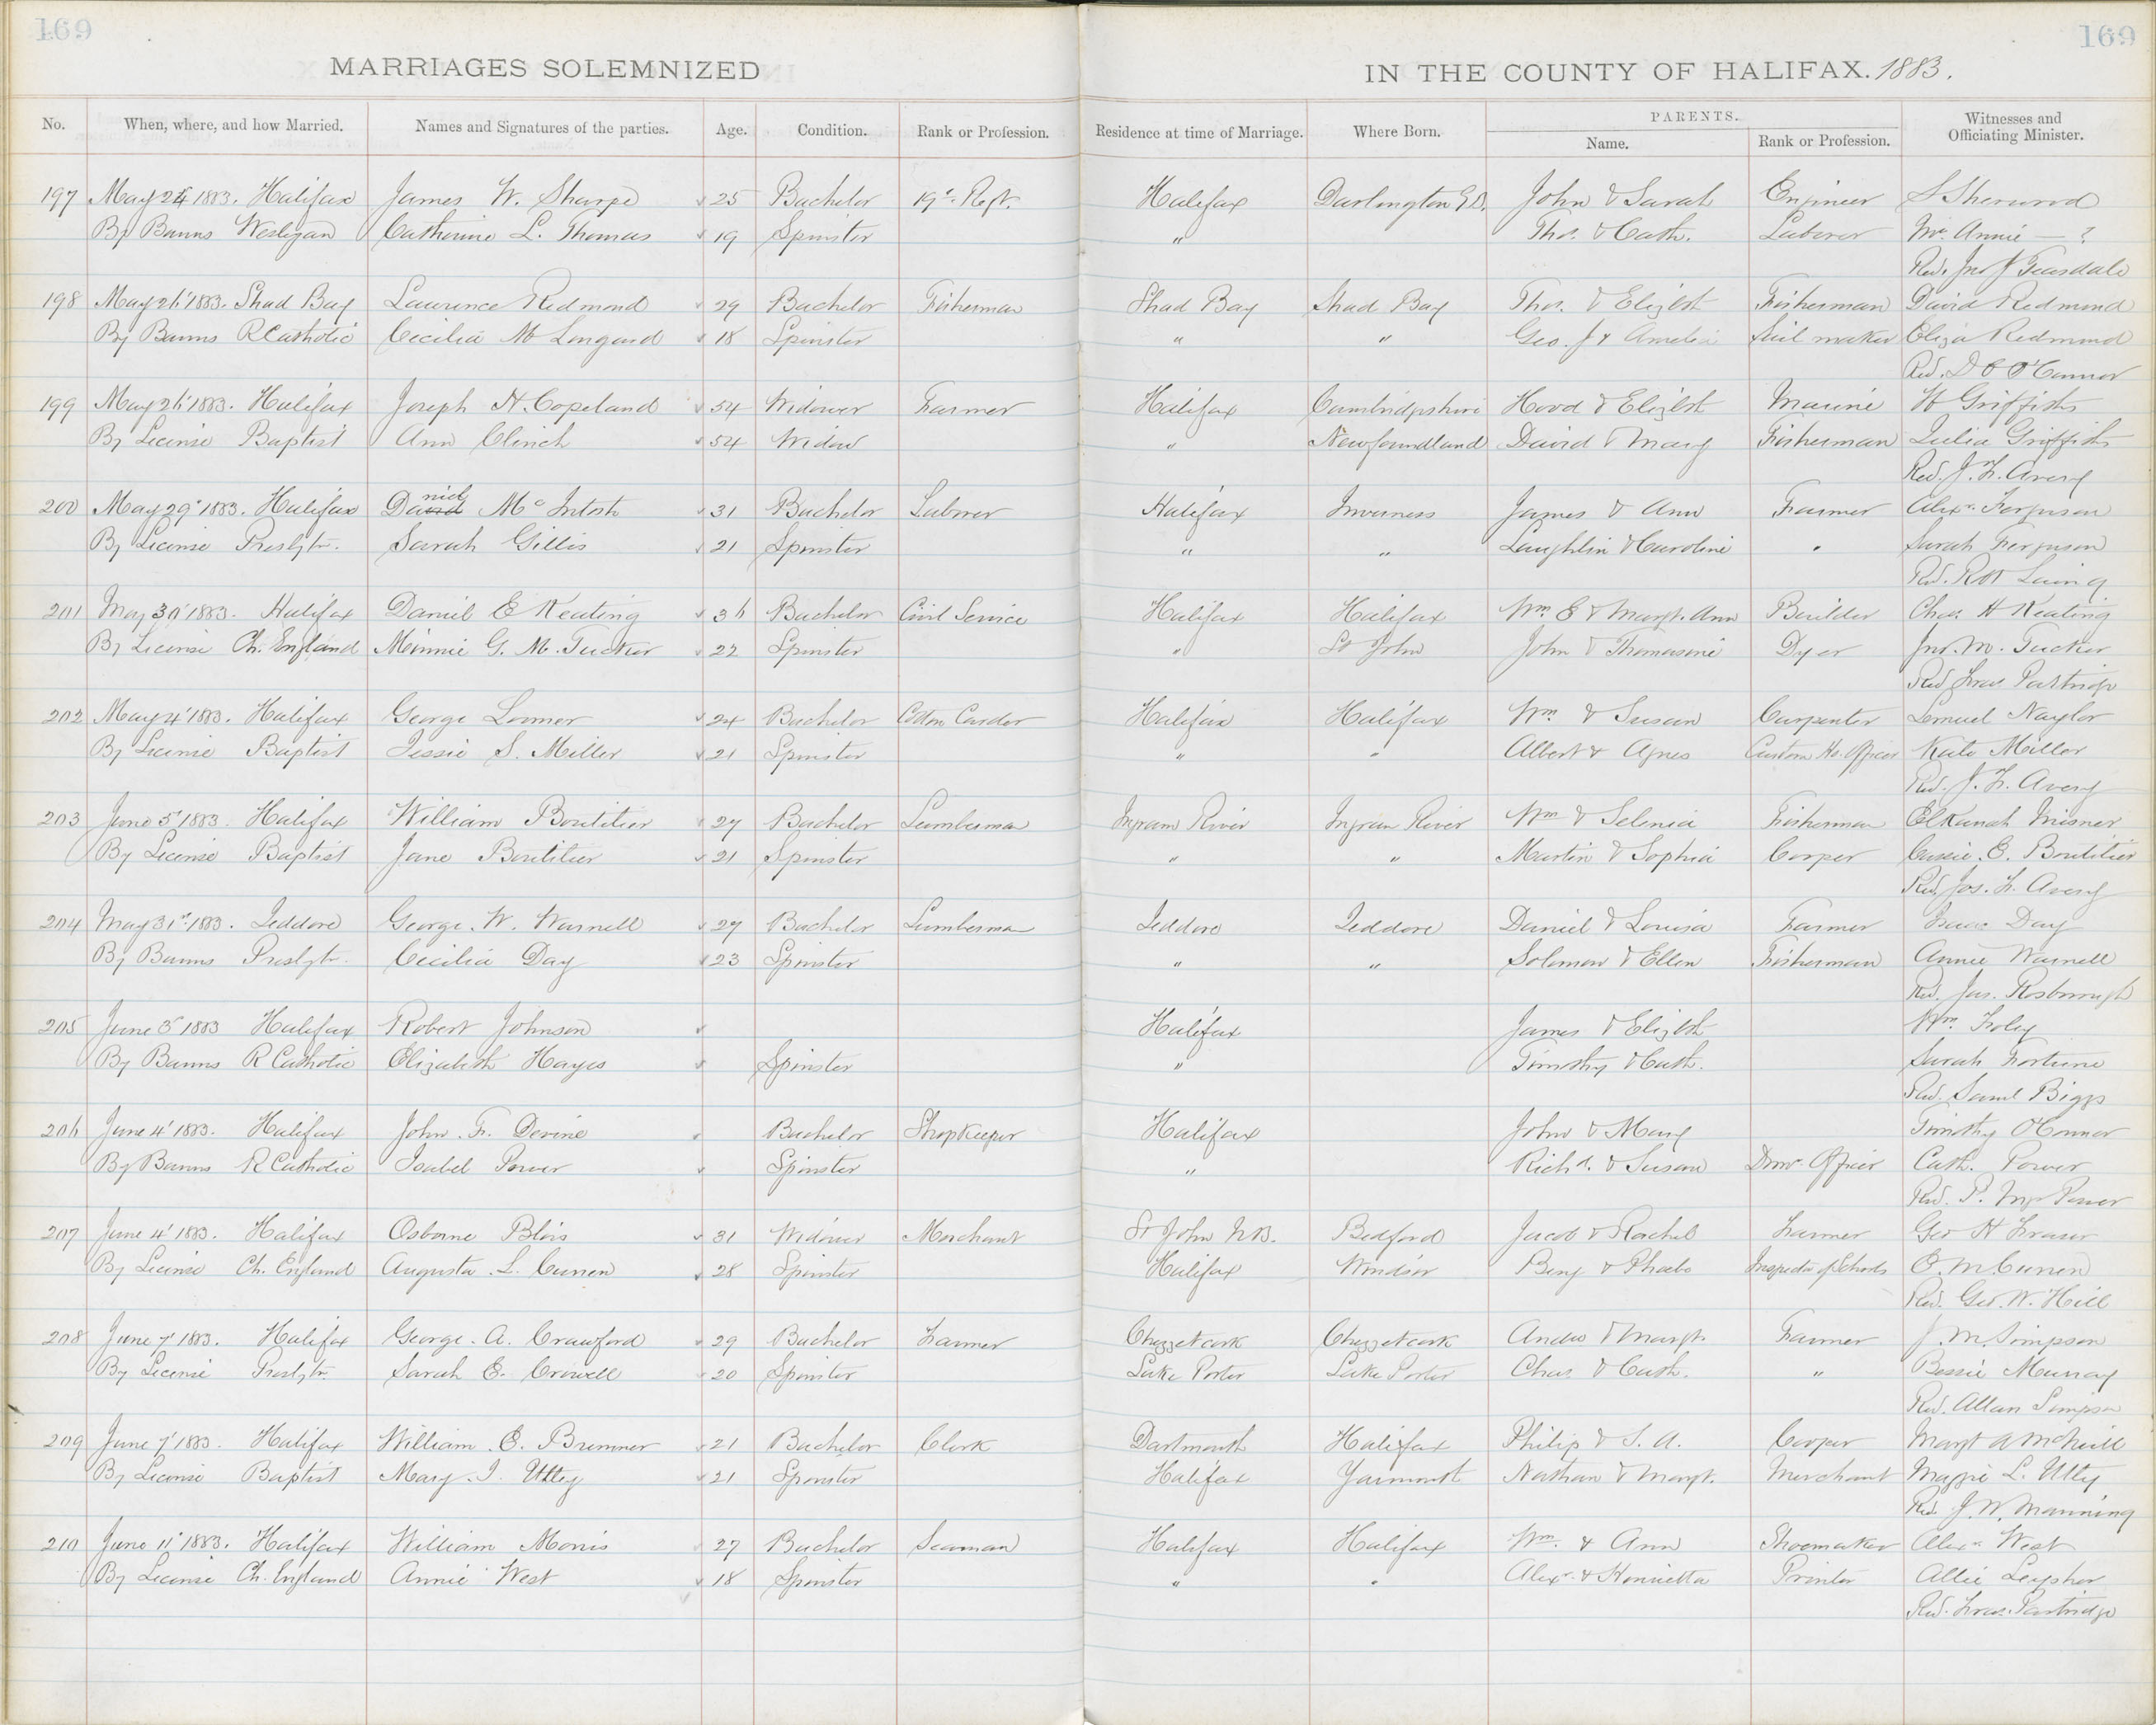 169 169
MARRIAGES SOLEMNIZED IN THE COUNTY OF HALIFAX. 1883.
No. When, where, and how Married. Names and Signatures of the parties. Age. Condition. Rank or Profession. Residence at time of Marriage. Where Born. PARENTS. Name. Rank or Profession. Witnesses and Officiating Minister.
197 May 24 1883. Halifax James W. Sharpe 25 Bachelor 19th Regt. Halifax Darlington John & Sarah Engineer S Sherwood
By Banns Wesleyan Catherine L. Thomas 19 Spinster " Thos. & Cath. Laborer Mr. Annie — ?
Rev. Jno J Teasdale
198 May 26 1883. Shad Bay Laurence Redmond 29 Bachelor Fisherman Shad Bay Shad Bay Thos. & Elizbth Fisherman David Redmond
By Banns R Catholic Cecilia M Longard 18 Spinster " " Geo. J & Amelia Sail maker Eliza Redmond
Rev. D C O'Connor
199 May 26 1883. Halifax Joseph H. Copeland 54 Widower Farmer Halifax Cambridgshire Hood & Elizbth Marine W Griffiths
By License Baptist Ann Clinch 54 Widow " Newfoundland David & Mary Fisherman Julia Griffiths
Rev. J. F. Avery
200 May 29" 1883. Halifax Daniel McIntosh 31 Bachelor Laborer Halifax Inverness James & Ann Farmer Alexr. Ferguson
By License Presbytr. Sarah Gillis 21 Spinster " " Laughlin & Caroline " Sarah Ferguson
Rev. R Laing
201 May 30 1883. Halifax Daniel E Keating 36 Bachelor Civil Service Halifax Halifax Wm. E & Margt. Ann Builder Chas. H Keating
By License Ch. England Minnie G. M. Tucker 22 Spinster " St John John & Thomasine Dyer Jno. M. Tucker
Rev Fras Partridge
202 May 4 1883. Halifax George Loomer 24 Bachelor Cotton Carder Halifax Halifax Wm. & Susan Carpenter Lemuel Naylor
By License Baptist Jessie S. Miller 21 Spinster " " Albert & Agnes Custom Ho. Officer Kate Miller
Rev. J. F. Avery
203 June 5 1883. Halifax William Boutilier 27 Bachelor Lumberman Ingram River Ingram River Wm & Selenia Fisherman Elkanah Misner
By License Baptist Jane Boutilier 21 Spinster " " Martin & Sophia Cooper Cassie. E. Boutilier
Rev. Jos. F. Avery
204 May 31st 1883. Jeddore George. W. Warnell 27 Bachelor Lumberman Jeddore Jeddore Daniel & Louisa Farmer Isaac Day
By Banns Presbytr. Cecilia Day 23 Spinster " " Solomon & Ellen Fisherman Annie Warnell
Rev. Jas. Rosborough
205 June 3 1883 Halifax Robert Johnson Halifax James & Elizbth Wm. Foley
By Banns R Catholic Elizabeth Hayes Spinster " Timothy & Cath. Sarah Fortune
Rev. Saml Biggs
206 June 4 1883. Halifax John. F. Devine Bachelor Shopkeeper Halifax John & Mary Timothy O'Connor
By Banns R Catholic Isabel Power Spinster " Richd. & Susan Officer Cath. Power
Rev. P. Power
207 June 4 1883. Halifax Osborne Blois 31 Widower Merchant St John N.B. Bedford Jacob & Rachel Farmer Geo H Fraser
By License Ch. England Augusta. L. Curren 28 Spinster Halifax Windsor Benj & Phoebe Inspector of Schools E. M. Curren
Rev. Geo. W. Hill
208 June 7 1883. Halifax George. A. Crawford 29 Bachelor Farmer Chezzetcook Chezzetcook Andw & Margt. Farmer J. M. Simpson
By License Presbytr. Sarah E. Crowell 20 Spinster Lake Porter Lake Porter Chas. & Cath. " Bessie Murray
Rev. Allan Simpson
209 June 7 1883. Halifax William. E. Bremner 21 Bachelor Clerk Dartmouth Halifax Philip & S. A. Cooper Margt A McNeill
By License Baptist Mary. I. Utley 21 Spinster Halifax Yarmouth Nathan & Margt. Merchant Maggie L. Utley
Rev. J. W. Manning
210 June 11 1883. Halifax William Morris 27 Bachelor Seaman Halifax Halifax Wm. & Ann Shoemaker Alexr. West
By License Ch. England Annie West 18 Spinster " " Alexr. & Henrietta Printer Allie
Rev. Fras. Partridge